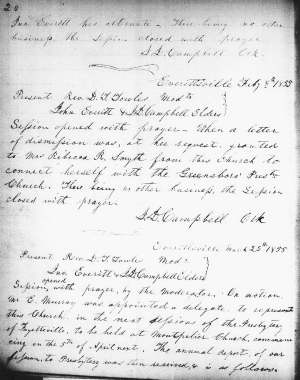 20
Jno Everitt his alternate - There being no other
business, the Session closed with prayer
S. D. Campbell Clk.
Everettsville Feby 8th 1855
Present Rev. D. T. Towles Modtr
John Everitt & S D Campbell Elders
Session opened with prayer - When a letter
of dismission was, at her request, granted
to Mrs Rebecca R. Smyth from this Church to
connect herself with the Greensboro Presbtn
Church. There being no other business, the Session
closed with prayer.
S. D. Campbell Clk
Everettsville March 22d 1855
Present Rev D. T. Towle Modr
Jno Everitt & S D Campbell Elders
Session, opened with prayer, by the moderator. On motion
Mr C. Murray was appointed a delegate to represent
this Church in the next sessions of the Presbytery
of Fayetteville, to be held at Montpelier Church, commen
cing on the 5th of April next. The annual report of our
Session to Presbytery was then received, & is as follows